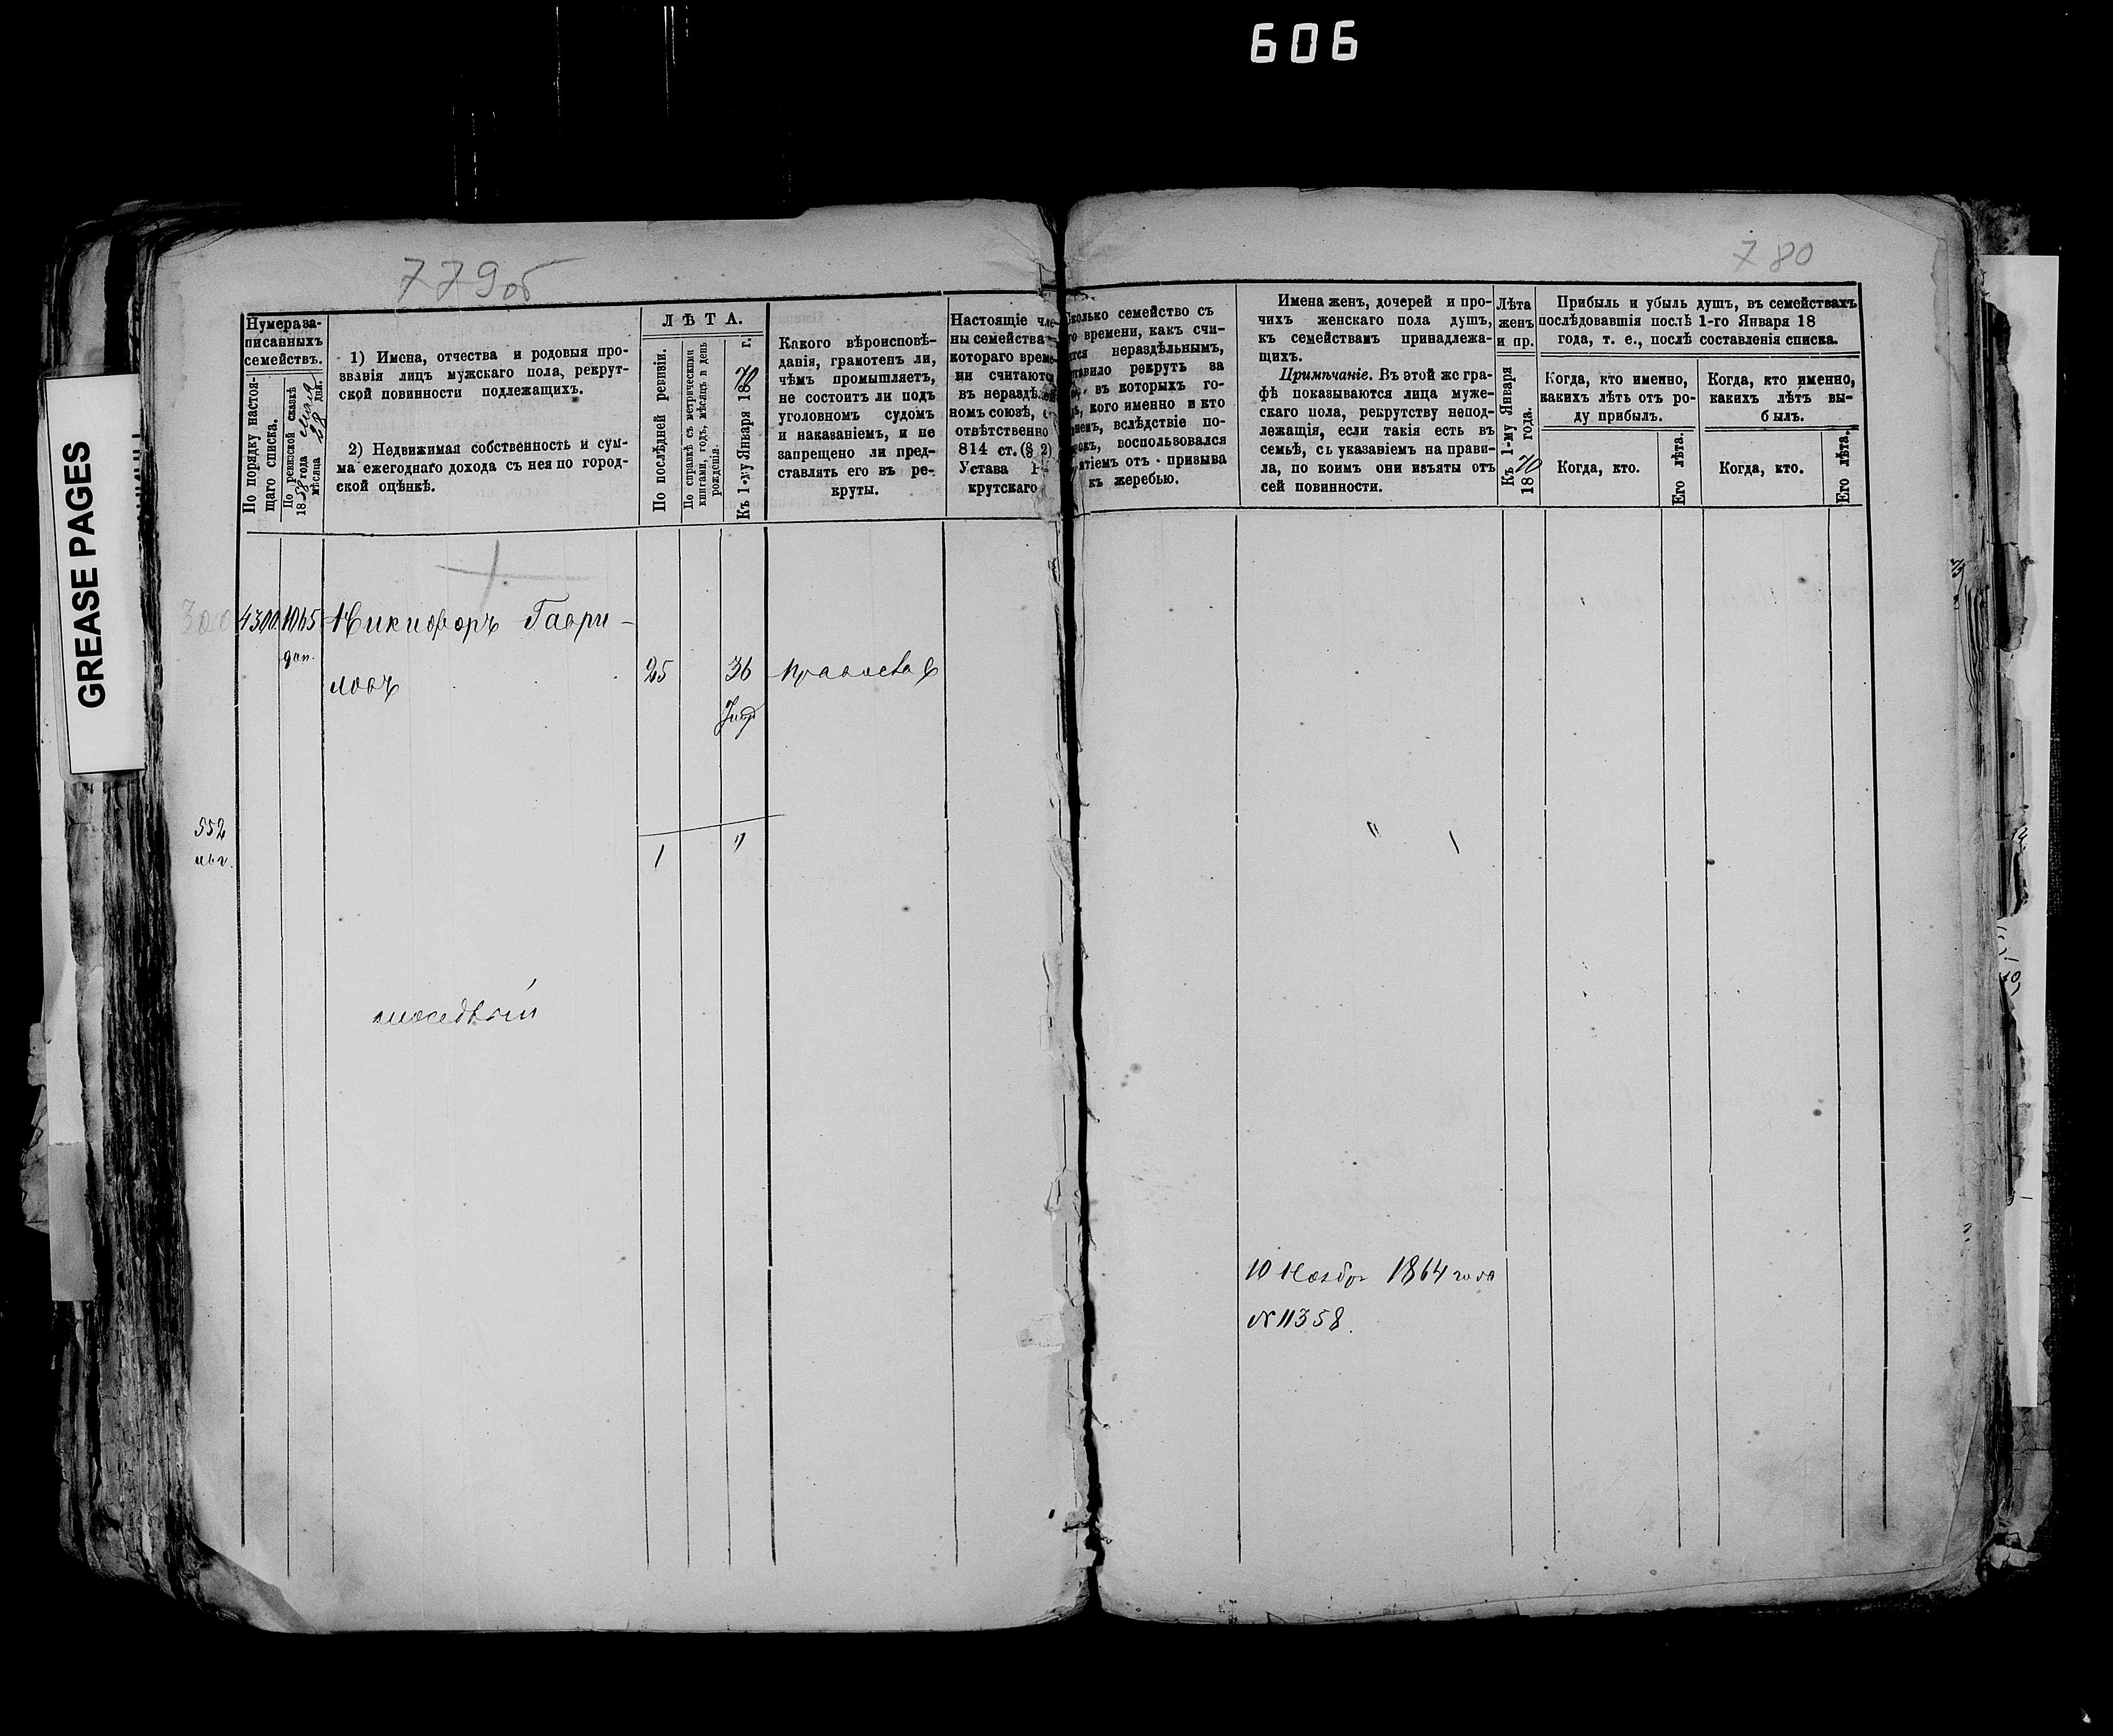 606
GREASE PAGES
779об
780
Нумера за-
писанныхъ
семействъ.
По порядку настоя-
щаго списка.
По ревизской сказкѣ
1858 года
мѣсяца 28 дня.
1) Имена, отчества и родовыя про-
званія лицъ мужскаго пола, рекрут-
ской повинности подлежащихъ.
2) Недвижимая собственность и сум-
ма ежегоднаго дохода съ нея по город-
ской оцѣнкѣ.
ЛѢТА.
По послѣдней ревизіи.
По справкѣ съ метрическими
книгами, годъ, мѣсяцъ и день
рожденія.
Къ 1-му Января 1870 г.
Какого вѣроисповѣ-
данія, грамотенъ ли,
чѣмъ промышляетъ,
не состоитъ ли подъ
уголовномъ судомъ
и наказаніемъ, и не
запрещено ли пред-
ставлять его въ ре-
круты.
Настоящіе чле-
ны семейства
котораго време-
ни считаютс
въ нераздѣл
номъ союзѣ,
отвѣтственно
814 ст. (§ 2)
Устава Р
крутскаго
колько семейство съ
го времени, какъ счи-
тся нераздѣльнымъ,
тавило рекрутъ за
въ которыхъ го-
кого именно и кто
вслѣдствіе по-
воспользовался
ятіемъ отъ призыва
къ жеребью.
Имена женъ, дочерей и про-
чихъ женскаго пола душъ,
къ семействамъ принадлежа-
щихъ.
Примѣчаніе. Въ этой же гра-
фѣ показываются лица муже-
скаго пола, рекрутству непод-
лежащія, если такія есть въ
семьѣ, съ указаніемъ на прави-
ла, по коимъ они изъяты отъ
сей повинности.
Лѣта
женъ
и пр.
Къ 1-му Января
1870 года.
Прибыль и убыль душъ, въ семействахъ
послѣдовавшія послѣ 1-го Января 18
года, т. е., послѣ составленія списка.
Когда, кто именно,
какихъ лѣтъ отъ ро-
ду прибылъ.
Когда, кто именно,
какихъ лѣтъ вы-
былъ.
Когда, кто.
Его лѣта.
Когда, кто.
Его лѣта.
300 4300 1065 Никифоръ Гаври-
доп.
ловъ 25 36 Православ
552
1 "
" 1
10 Ноябр 1864 года
№ 11358.